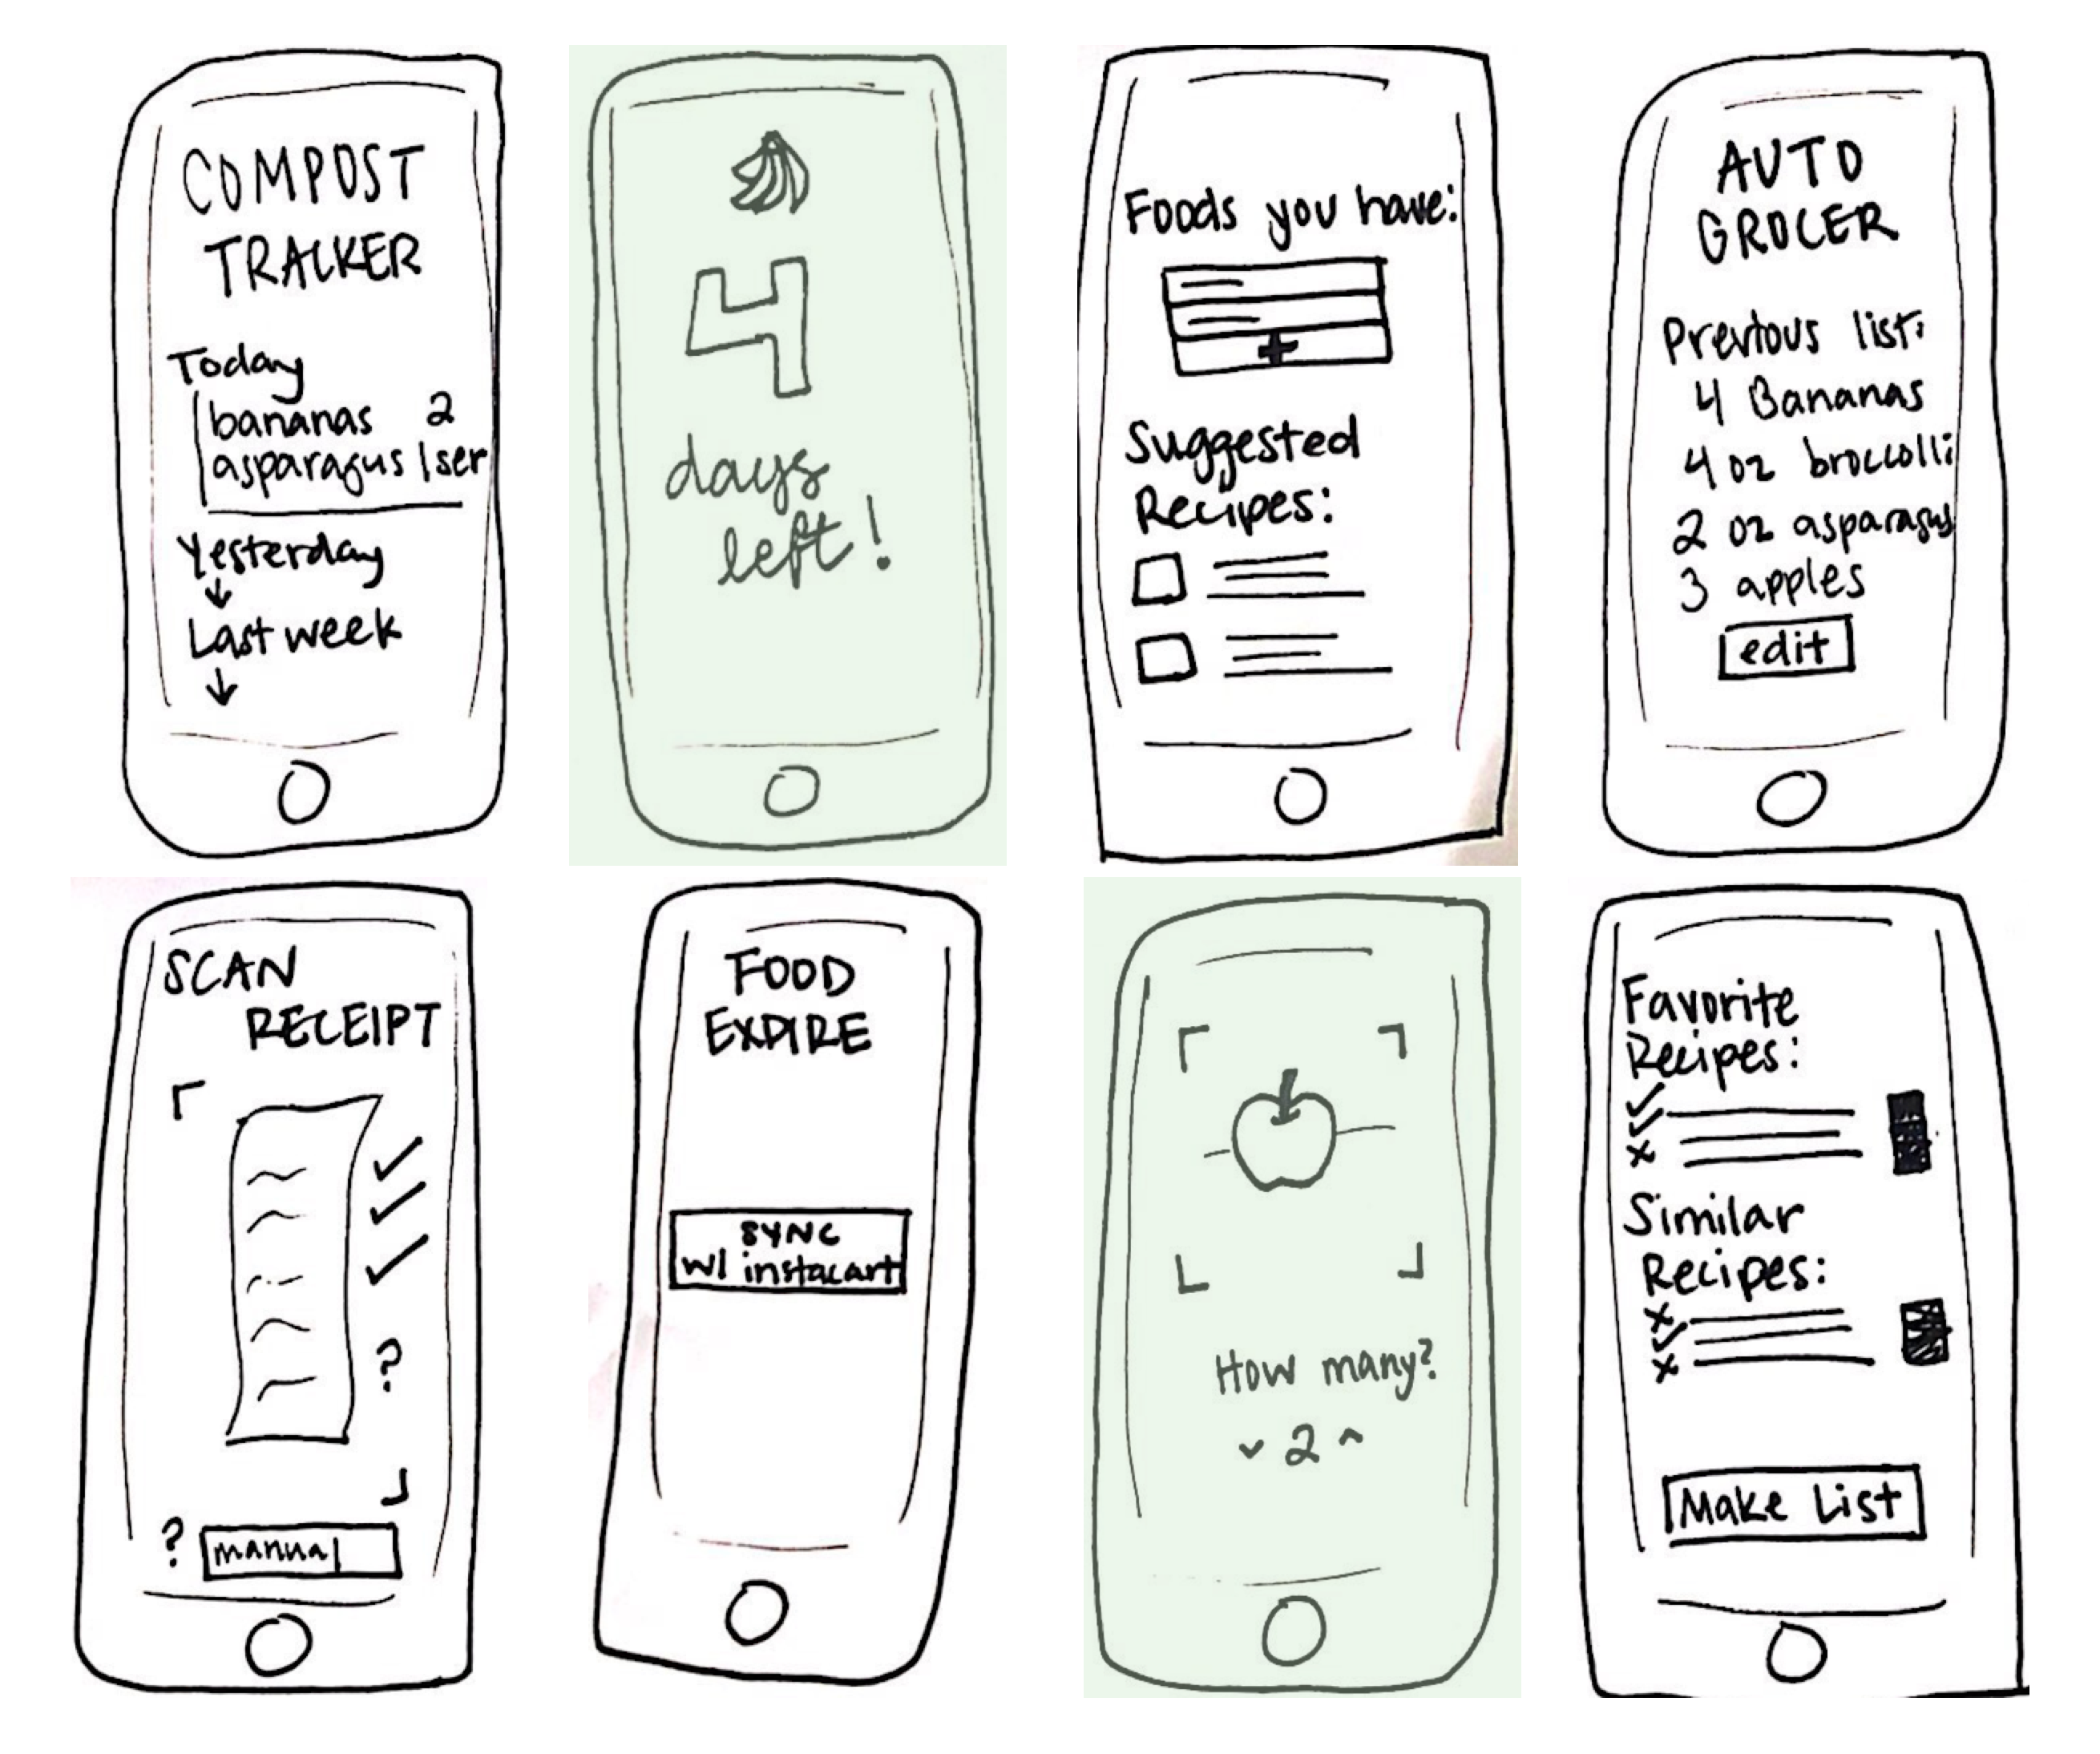 COMPOST
TRACKER
Today
bananas 2
asparagus 1 ser
Yesterday
Last week
4
days
left!
Foods you have:
+
Suggested
Recipes:
AUTO
GROCER
Previous list:
4 Bananas
4 oz broccolli
2 oz asparagus
3 apples
edit
SCAN
RECEIPT
?
? manual
FOOD
EXPIRE
SYNC
w/ instacart
How many?
2
Favorite
Recipes:
Similar
Recipes:
Make List